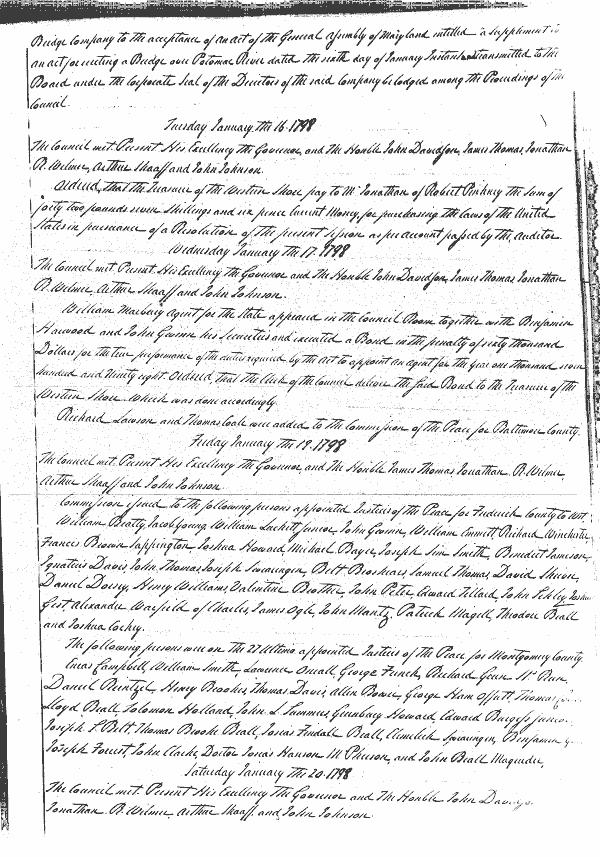 Bridge Company to the acceptance of an act of the General Assembly of Maryland intitled "a Supplement to
an act for erecting a Bridge over Potomac River dated the sixth day of January Instant transmitted to the
Board under the Corporate Seal of the Directors of the said Company be lodged among the Proceedings of the
Council.
Tuesday January the 16. 1798
The Council met. Present His Excellency the Governor, and The Honble John Davidson, James Thomas, Jonathan
R. Wilmer, Arthur Shaaff and John Johnson.
Ordered, that the Treasurer of the Western Shore pay to Mr Jonathan of Robert Pinkney the Sum of
forty two pounds seven Shillings and six pence Current Money, for purchasing the Laws of the United
States in pursuance of a Resolution of the present Session as per account passed by the, Auditor.
Wednesday January the 17. 1798
The Council met. Present His Excellency the Governor and The Honble John Davidson, James Thomas Jonathan
R. Wilmer, Arthur Shaaff and John Johnson.
William Marbury Agent for the State appeared in the Council Room together with Benjamin
Harwood and John Gwinn his Securities and executed a Bond in the penalty of sixty thousand
Dollars for the true performance of the duties required by the Act to appoint an Agent for the Year one thousand seven
hundred and Ninety eight. Ordered, that the Clerk of the Council deliver the said Bond to the Treasurer of the
Western Shore which was done accordingly.
Richard Lawson and Thomas Coale were added to the Commission of the Peace for Baltimore County.
Friday January the 19. 1798
The Council met. Present His Excellency the Governor, and the Honble James Thomas, Jonathan R. Wilmer
Arthur Shaaff and John Johnson.
Commission issued to the following persons appointed Justices of the Peace for Frederick County to Wit.
William Beatty, Jacob Young, William Luckett Junior, John Gwinn, William Emmett, Richard Winchester
Francis Brown Sappington, Joshua Howard, Michael Bayer, Joseph Sim Smith, Benedict Jamieson,
Ignatius Davis, John Thomas, Joseph Swearingen, Belt Brashears, Samuel Thomas, David Shriver,
Daniel Dorsey, Henry Williams, Valentine Brother, John Peter, Edward Tillard, John Schley, Joshua
Gist, Alexander Warfield of Charles, James Ogle, John Mantz, Patrick Magill, Theodore Beall
and Joshua Cockey.
The following persons were on the 27 Ultimo appointed Justices of the Peace for Montgomery County
Eneas Campbell, William Smith, Lawrence Oneall, George Funck, Richard Green
Daniel Reintzel, Henry Brookes, Thomas Davis, Allen Bowie, George Ham Offutt Thomas
Lloyd Beall, Solomon Holland, John L Summers, Greenbury Howard, Edward Burgess junior,
Joseph S. Belt, Thomas Brooke Beall, Josias Fendall Beall, Elimelech Swearingen, Benjamin
Joseph Forrest, John Clarke, Doctor Josias Hanson McPherson, and John Beall Magruder,
Saturday January the 20. 1798
The Council met. Present His Excellency the Governor and The Honble John
Jonathan R. Wilmer, Arthur Shaaff, and, John Johnson.